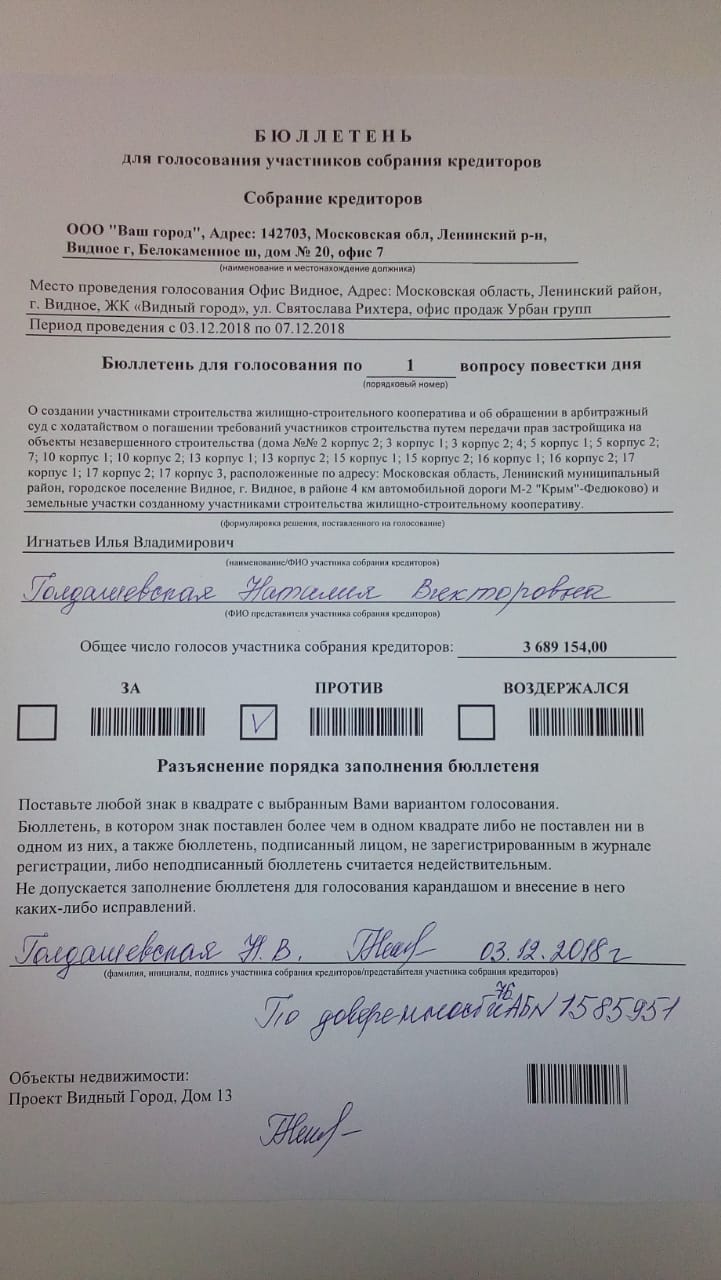 БЮЛЛЕТЕНЬ
для голосования участников собрания кредиторов
Собрание кредиторов
ООО "Ваш город", Адрес: 142703, Московская обл, Ленинский р-н,
Видное г, Белокаменное ш, дом № 20, офис 7
(наименование и местонахождение должника)
Место проведения голосования Офис Видное, Адрес: Московская область, Ленинский район,
г. Видное, ЖК «Видный город», ул. Святослава Рихтера, офис продаж Урбан групп
Период проведения с 03.12.2018 по 07.12.2018
Бюллетень для голосования по 1 вопросу повестки дня
(порядковый номер)
О создании участниками строительства жилищно-строительного кооператива и об обращении в арбитражный
суд с ходатайством о погашении требований участников строительства путем передачи прав застройщика на
объекты незавершенного строительства (дома №№ 2 корпус 2; 3 корпус 1; 3 корпус 2; 4; 5 корпус 1; 5 корпус 2;
7; 10 корпус 1; 10 корпус 2; 13 корпус 1; 13 корпус 2; 15 корпус 1; 15 корпус 2; 16 корпус 1; 16 корпус 2; 17
корпус 1; 17 корпус 2; 17 корпус 3, расположенные по адресу: Московская область, Ленинский муниципальный
район, городское поселение Видное, г. Видное, в районе 4 км автомобильной дороги М-2 "Крым"-Федюково) и
земельные участки созданному участниками строительства жилищно-строительному кооперативу.
(формулировка решения, поставленного на голосование)
Игнатьев Илья Владимирович
(наименование/ФИО участника собрания кредиторов)
Голдашевская Наталия Викторовна
(ФИО представителя участника собрания кредиторов)
Общее число голосов участника собрания кредиторов: 3 689 154,00
ЗА ПРОТИВ ВОЗДЕРЖАЛСЯ
V
Разъяснение порядка заполнения бюллетеня
Поставьте любой знак в квадрате с выбранным Вами вариантом голосования.
Бюллетень, в котором знак поставлен более чем в одном квадрате либо не поставлен ни в
одном из них, а также бюллетень, подписанный лицом, не зарегистрированным в журнале
регистрации, либо неподписанный бюллетень считается недействительным.
Не допускается заполнение бюллетеня для голосования карандашом и внесение в него
каких-либо исправлений.
Голдашевская Н.В. 03.12.2018г
(фамилия, инициалы, подпись участника собрания кредиторов/представителя участника собрания кредиторов)
По доверенности 76 АБ N 1585951
Объекты недвижимости:
Проект Видный Город, Дом 13